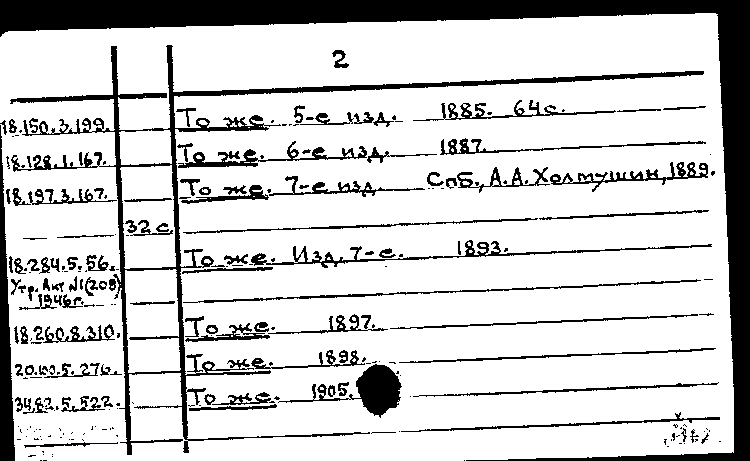 2
18.150.3.199. То же. 5-е изд. 1885. 64с.
18.128.1.167. То же. 6-е изд. 1887.
18.197.3.167. То же. 7-е изд. Спб., А.А. Холмушин, 1889.
32 с.
18.284.5.56. То же. Изд. 7-е. 1893.
Утр. Акт №1(209)
1946г.
18.260.8.310. То же. 1897.
20.100.5.276. То же. 1898.
34.82.5.522. То же. 1905.